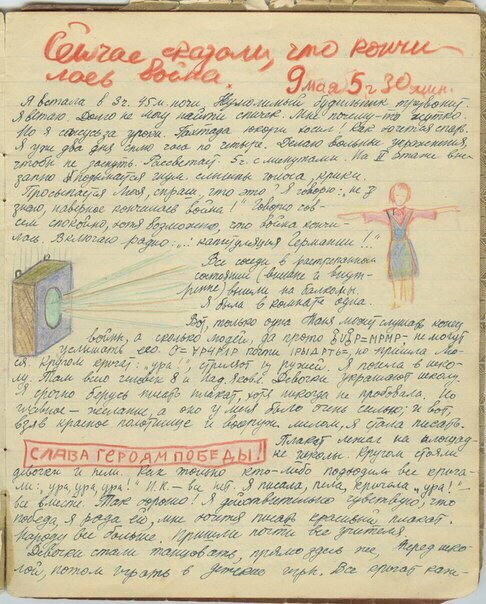 Сейчас сказали, что кончи-
лась война. 9 мая 5 ч 30 мин.
Я встала в 3 ч. 45 м. ночи. Неумолимый будильник трезвонит.
Я встаю. Долго не могу найти спичек. Мне почему-то жутко.
Но я сажусь за уроки. Полтора косил! Как хочется спать.
Я уже два дня сплю часа по четыре. Делаю вольные движения,
чтобы не заснуть. Рассветает. 5 ч. с минутами. На II этаже вне-
запно поднимается шум. слышны голоса, крики.
Просыпается Люся, спраш.: "что это?" Я говорю: "не
знаю, наверное кончилась война!" Говорю сов-
сем спокойно, хотя возможно, что война кончи-
лась. Включаю радио: "..: капитуляция Германии!!"
Все соседи в растрёпанном
состоянии (внешне и внут-
ренне) вышли на балконы.
Я была в комнате одна.
Вот, только одна Таня может слушать конец
войны, а сколько людей, да просто не могут
услышать его. почти не пришла Лю-
ся. Кругом кричат: "ура!" стреляют из ружей. Я пошла в шко-
лу. Там было человек 8 и Над. Яковл. Девочки украшают школу.
Я срочно берусь писать плакат, хотя никогда не пробовала. Но
главное – желание, а оно у меня было очень сильно; и вот,
взяв красное полотнище и вооруж. мелом, я стала писать.
СЛАВА ГЕРОЯМ ПОБЕДЫ!
Плакат лежал на площад-
ке школы. Кругом стояли
девочки и пели. Как только кто-либо подходил все крича-
ли: "ура, ура, ура!" Н.К. – вы нет. Я писала, пела, кричала "ура!" –
все вместе. Так хорошо! Я действительно чувствую, что
победа, я рада ей, мне хочется писать красивый плакат.
Народу всё больше. Пришли почти все учителя.
Девочки стали танцевать, прямо здесь же, перед шко-
лой, потом играть в детские игры. Все кричат